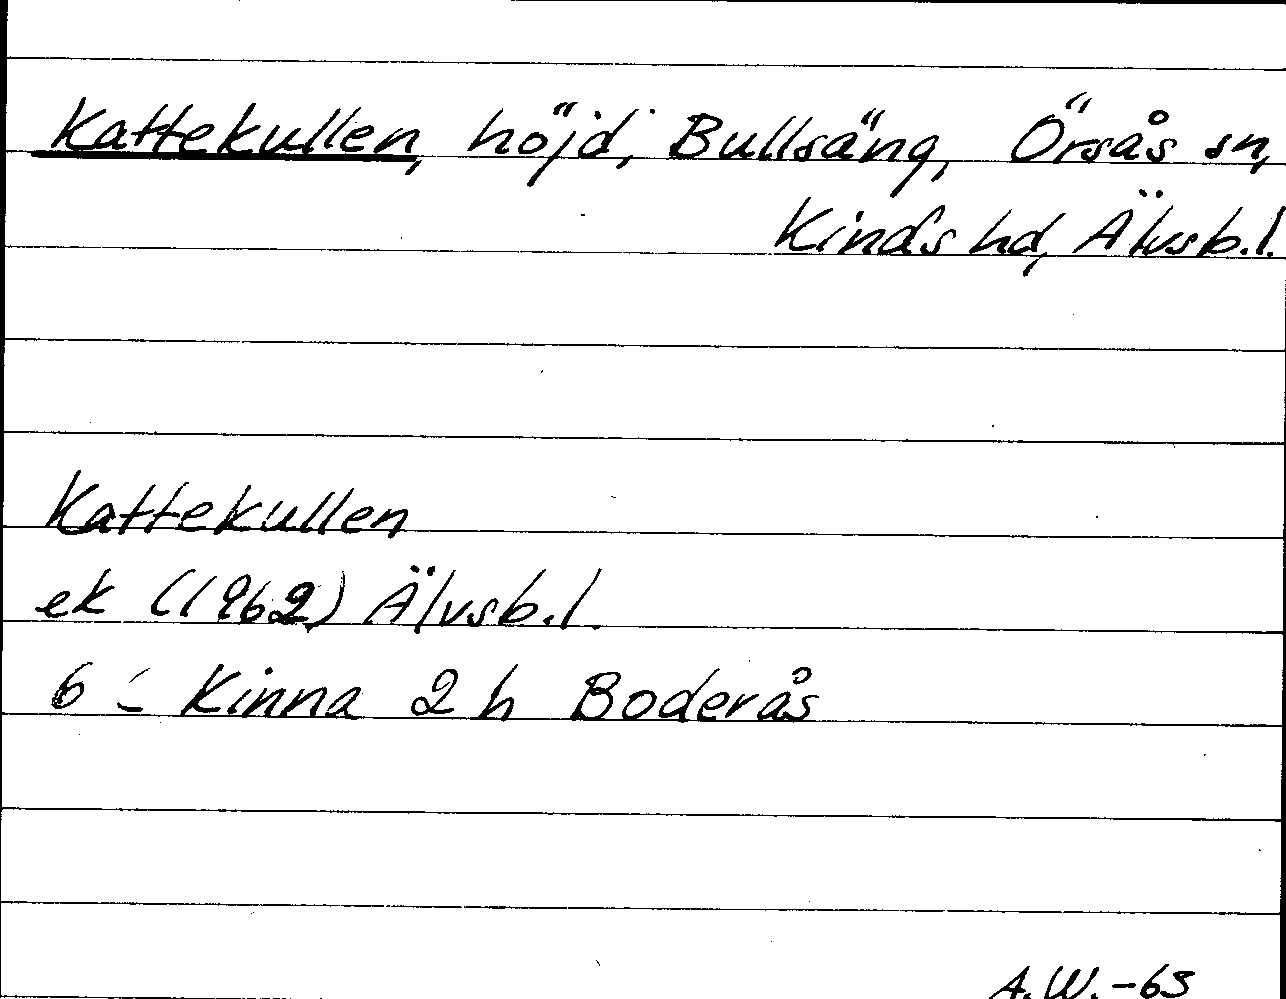 Kattekullen, höjd, Bullsäng, Örsås sn,
Kinds hd, Älvsb.l.
Kattekullen
ek (1962) Älvsb.l.
6 : Kinna 2 h Boderås
A.W. -63